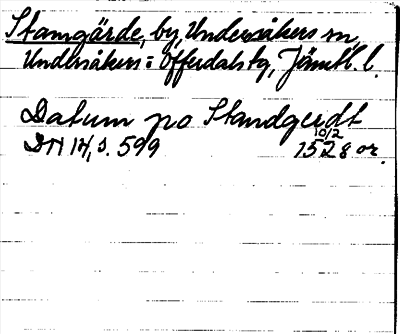 Stamgärde, by, Undersåkers sn,
Undersåkers= Offerdals tg, Jämtl. l.
Datum po Standgerdt
10/2
DN 14, s. 599 1528 or.